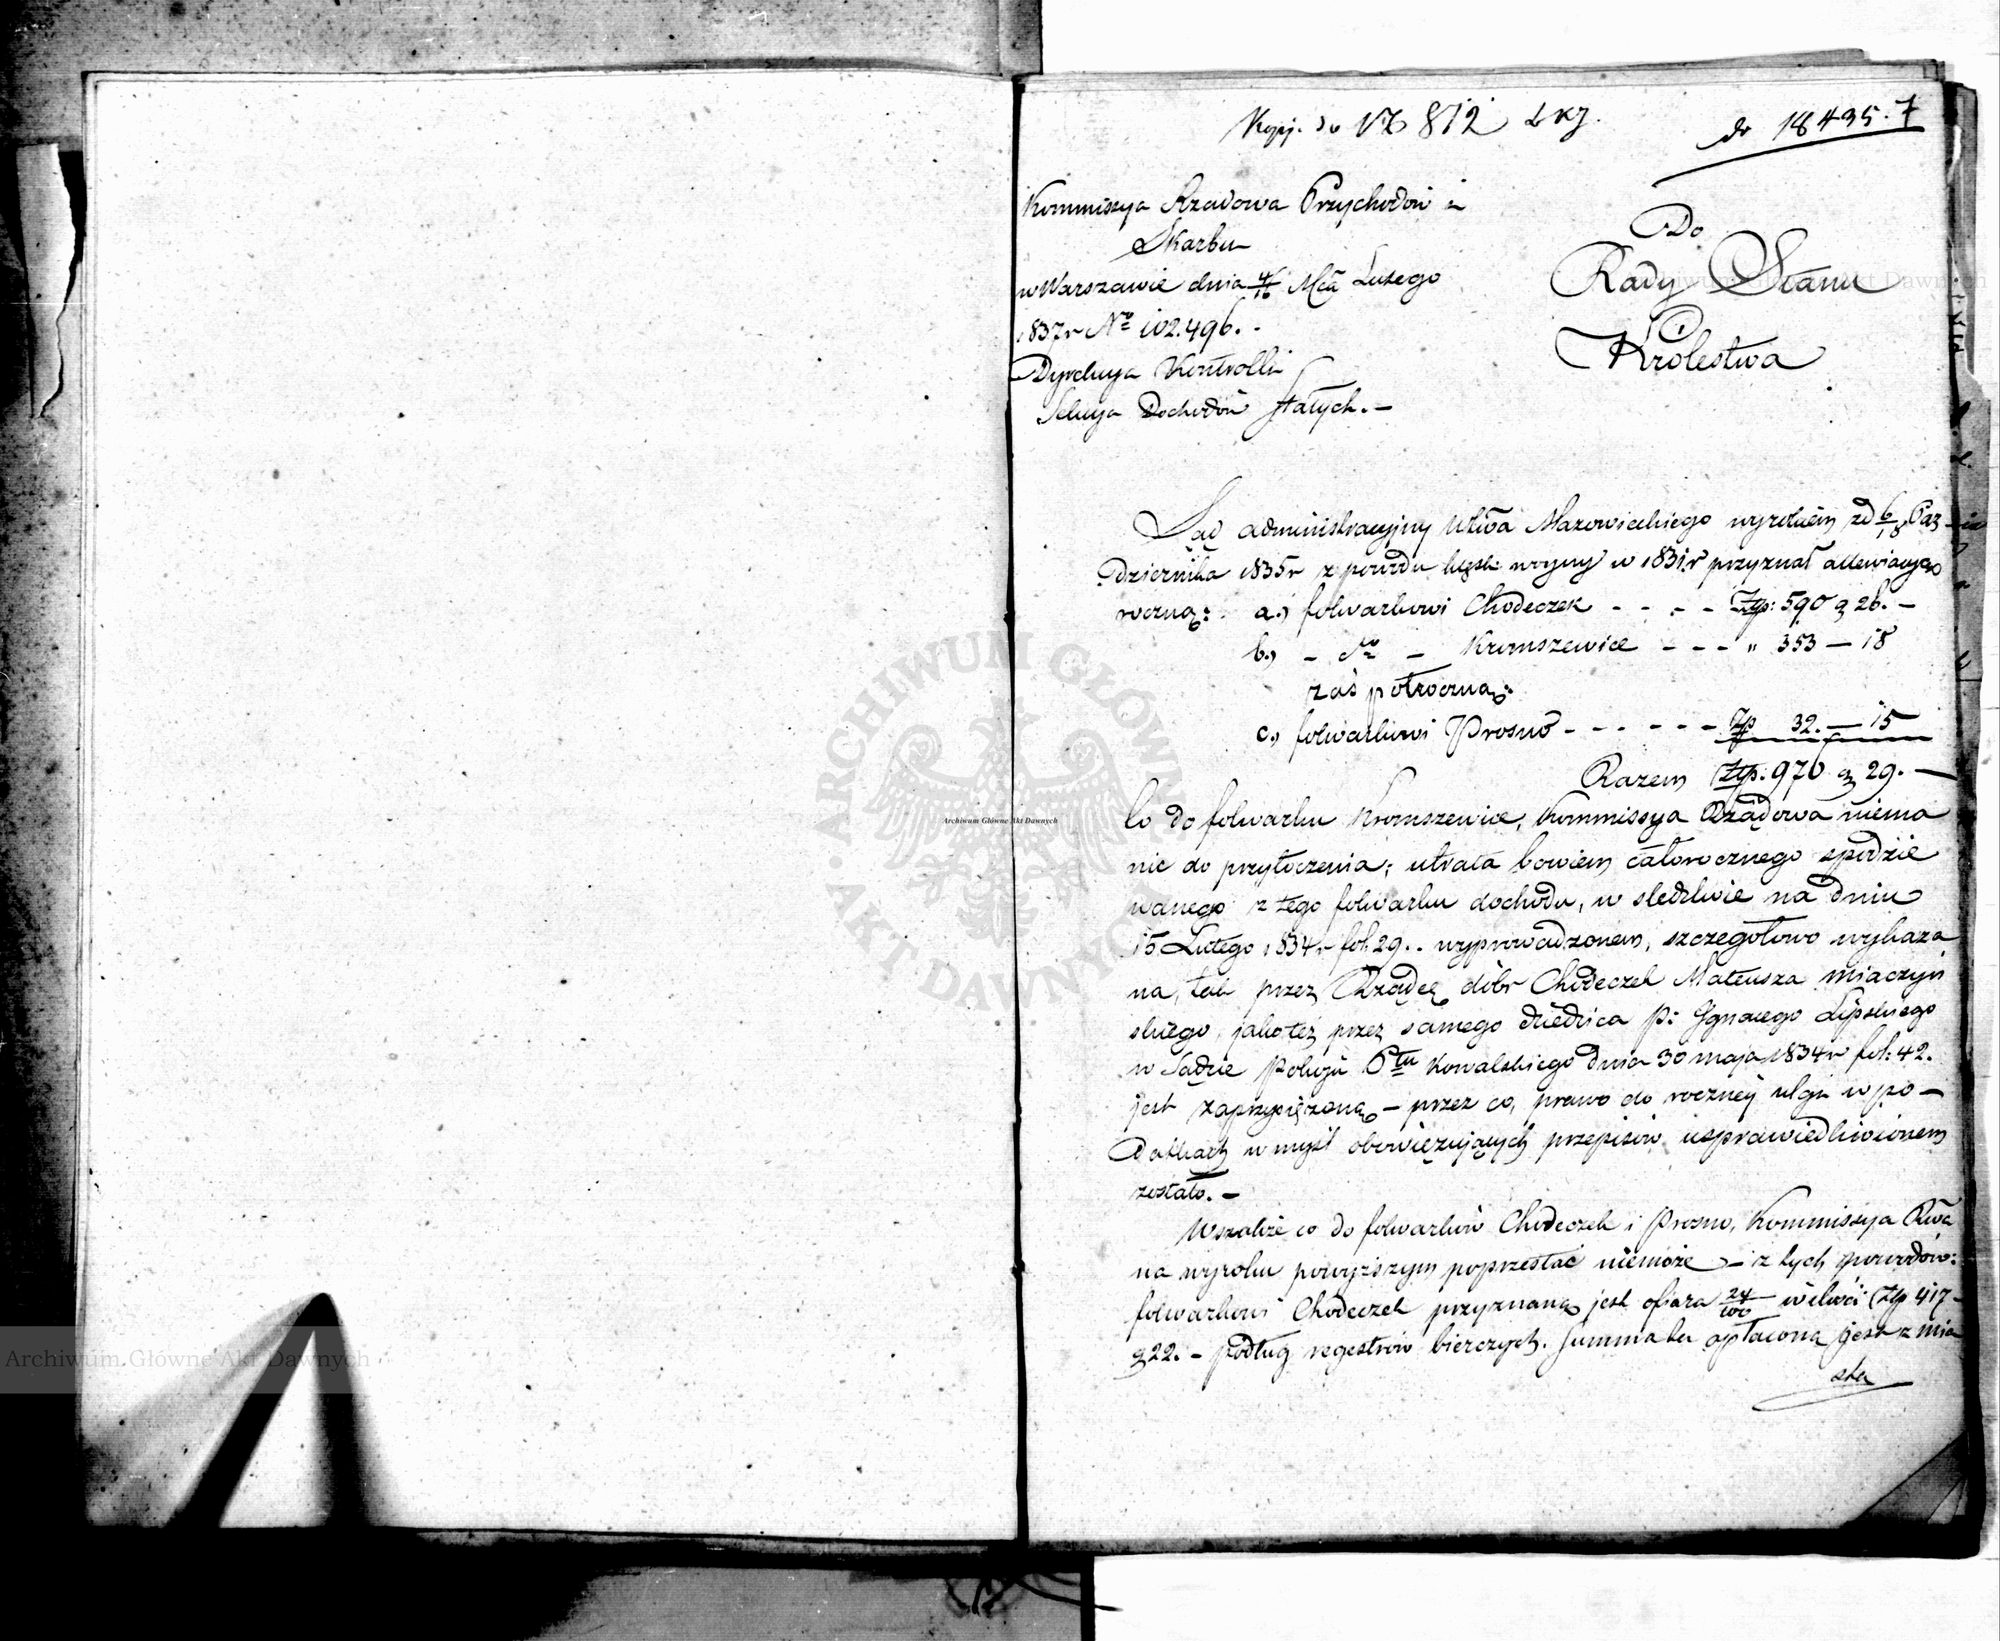 Kopj. do N 812
do 18435.7
Kommissya Rządowa Przychodów i
Skarbu
w Warszawie dnia 4/16 Mca Lutego
1837 r No 102.496.-
Dyrekcya Kontrolli
Sekcya Dochodów Stałych.-
Do
Rady Stanu
Królestwa
Sąd administracyjny Wtwa Mazowieckiego wyrokiem zd 6/18 Paz-
dziernika 1835 r z powodu klęsk woyny w 1831 r przyznał allewiacyą
roczną: a.) folwarkowi Chodeczek - - - - Złp: 590 g 26.-
b.) - do - Kromszewice - - - " 353 - 18
zaś półroczną:
c.) folwarkowi Prosno - - - - - - Złp 32.- 15
Razem Złp: 976 g 29.-
Co do folwarku Kromszewice, Kommissya Rządowa niema
nic do przytoczenia; utrata bowiem całorocznego spodzie
wanego z tego folwarku dochodu, w śledztwie na dniu
15 Lutego 1834 r fol: 29.. wyprowadzonem, szczegołowo wykaza
na, tak przez Rządcę dóbr Chodeczek Mateusza Miączyń
skiego, jako też przez samego dziedzica P: Ignacego Lipskiego
w Sądzie Policyi Pttu Kowalskiego dnia 30 maja 1834 r fol: 42.
jest zaprzysiężoną - przez co, prawo do roczney ulgi w po-
datkach w myśl obowięzujących przepisów, usprawiedliwionem
zostało.-
Wszakże co do folwarków Chodeczek i Prosno, Kommissya Rwa
na wyroku powyższym poprzestać niemoże - z tych powodów:
folwarkowi Chodeczek przyznaną jest ofiara 24/100 w ilości Złp 417-
g 22.- podług regestrów bierczych. Summa ta opłacona jest z mia
sta
Archiwum Główne Akt Dawnych
Archiwum Główne Akt Dawnych
Archiwum Główne Akt Dawnych
ARCHIWUM GŁÓWNE · AKT DAWNYCH